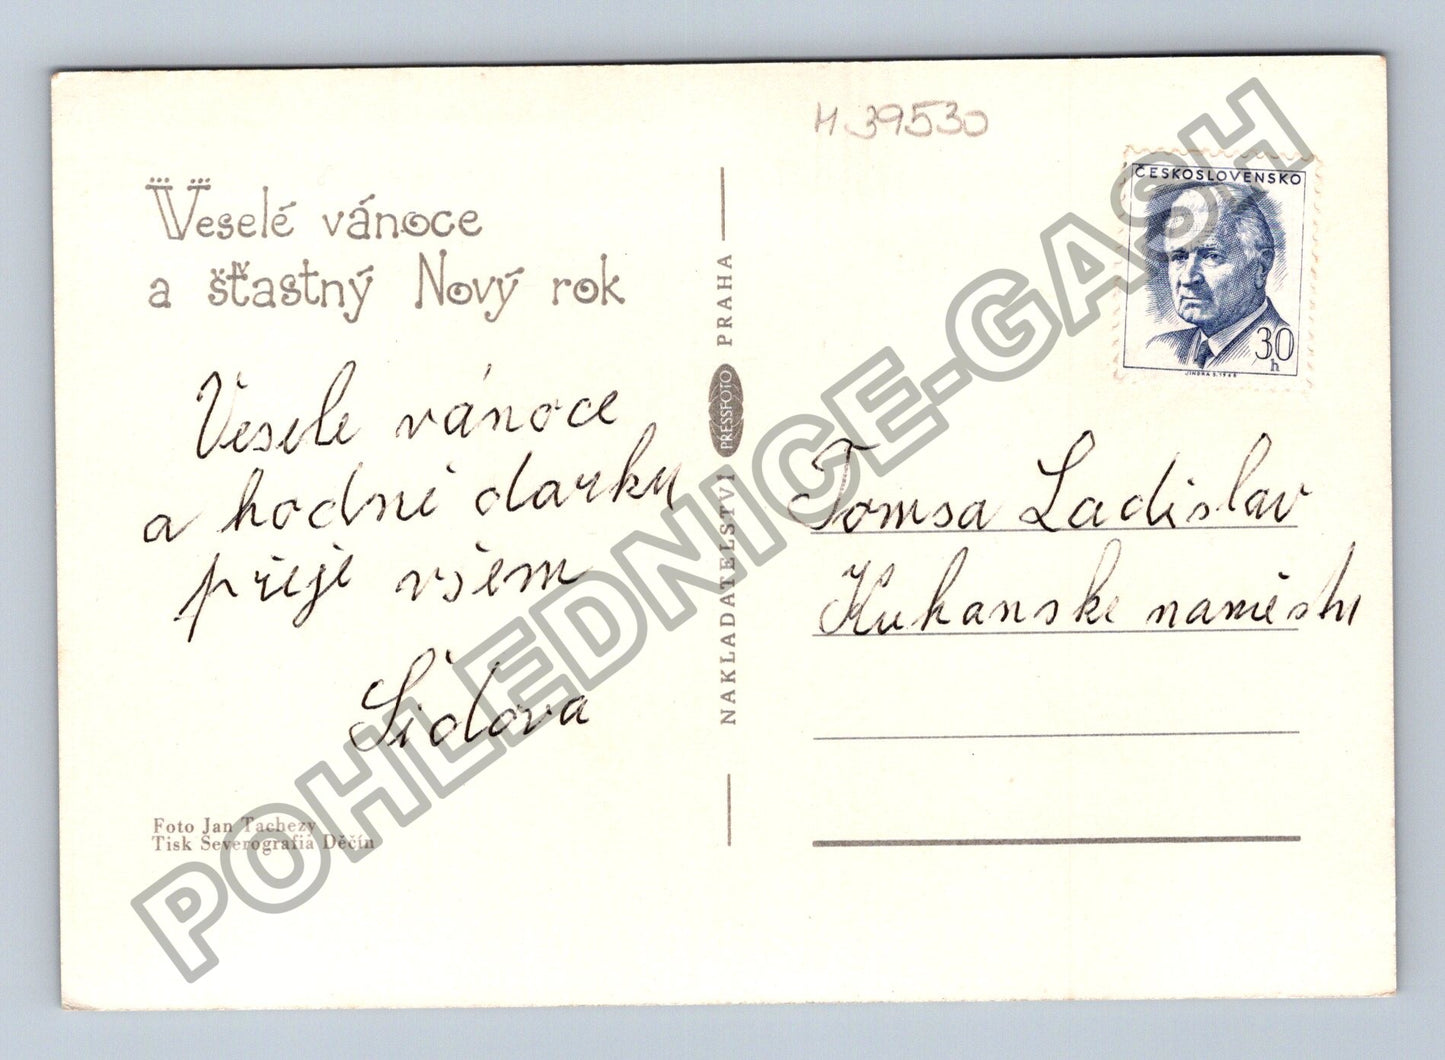 H 39530
ČESKOSLOVENSKO
30
h
JINDRA S. 1968
Veselé vánoce
a šťastný Nový rok
Vesele vánoce
a hodně darku
přeje všem
Šidova
Foto Jan Tachezy
Tisk Severografia Děčín
NAKLADATELSTVÍ PRESSFOTO PRAHA
Tomsa Ladislav
Kuhanske naměstu
POHLEDNICE-GASH